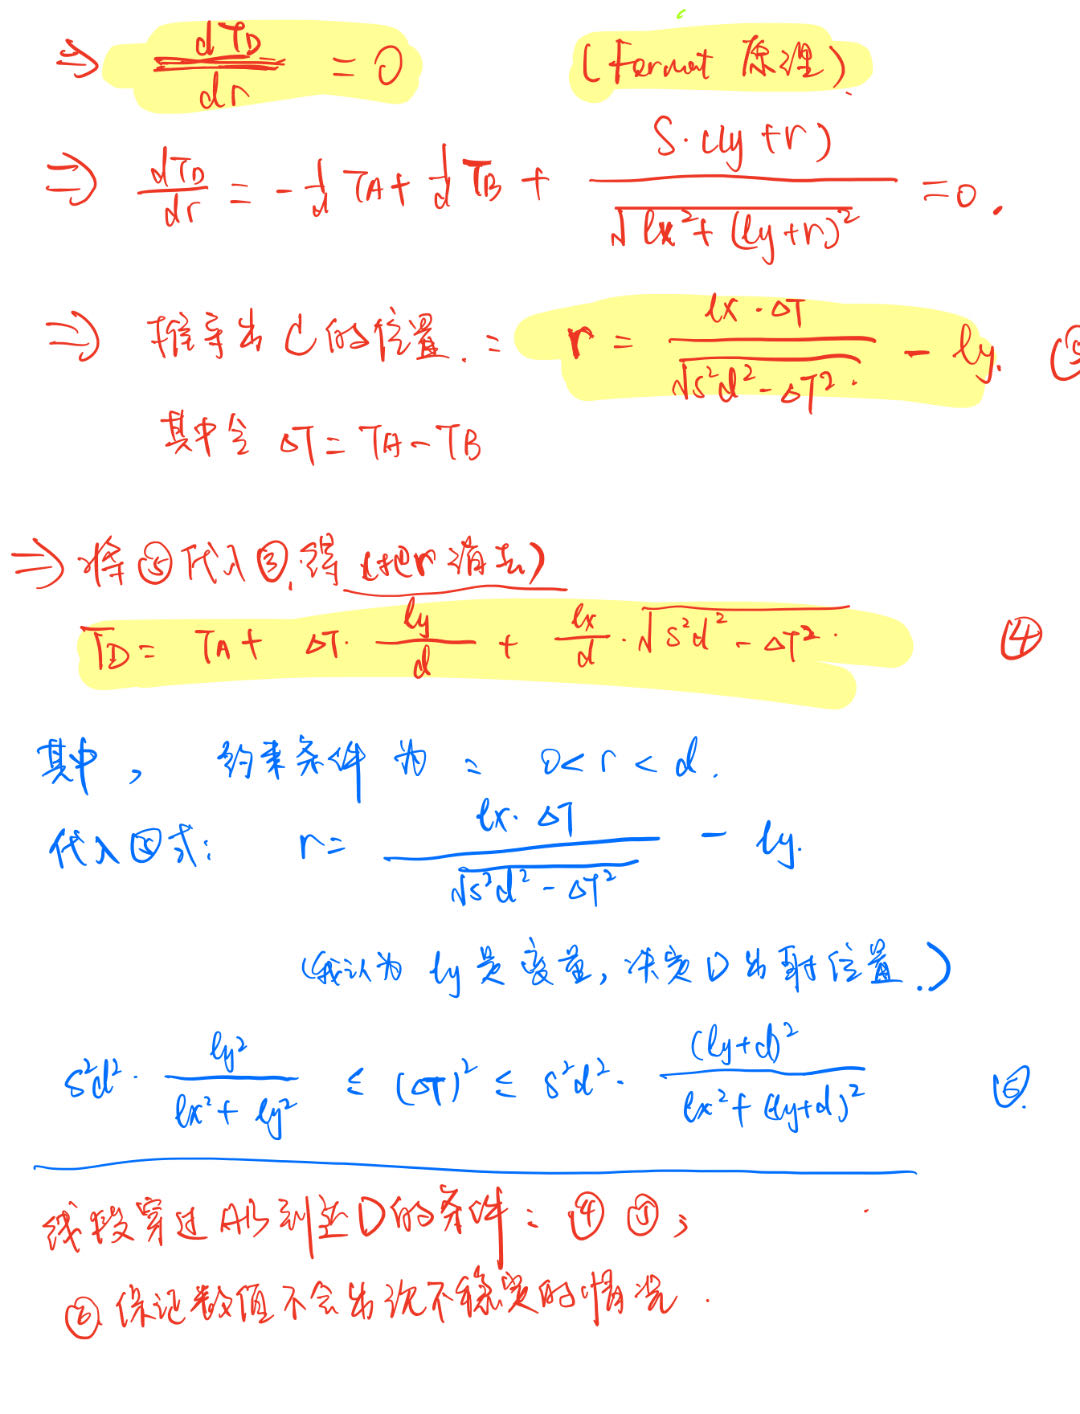 ⇒ dT_D/dr = 0 (Fermat 原理).
⇒ dT_D/dr = -1/d T_A + 1/d T_B + S·(ly+r)/√(lx²+(ly+r)²) = 0.
⇒ 推导出 C的位置.: r = lx·ΔT/√(s²d²-ΔT²) - ly.
其中令 ΔT = T_A - T_B
⇒ 将⑤代入③,得 (把r消去)
T_D = T_A + ΔT· ly/d + lx/d ·√(s²d²-ΔT²) ④
其中, 约束条件 为: 0<r<d.
代入⑤式: r = lx·ΔT/√(s²d²-ΔT²) - ly.
(我认为 ly 是变量,决定D出射位置.)
s²d²· ly²/(lx²+ly²) ≤ (ΔT)² ≤ s²d²· (ly+d)²/(lx²+(ly+d)²) ⑥.
线段穿过AB到达D的条件: ④ ⑤;
⑥保证数值不会出现不稳定的情况.